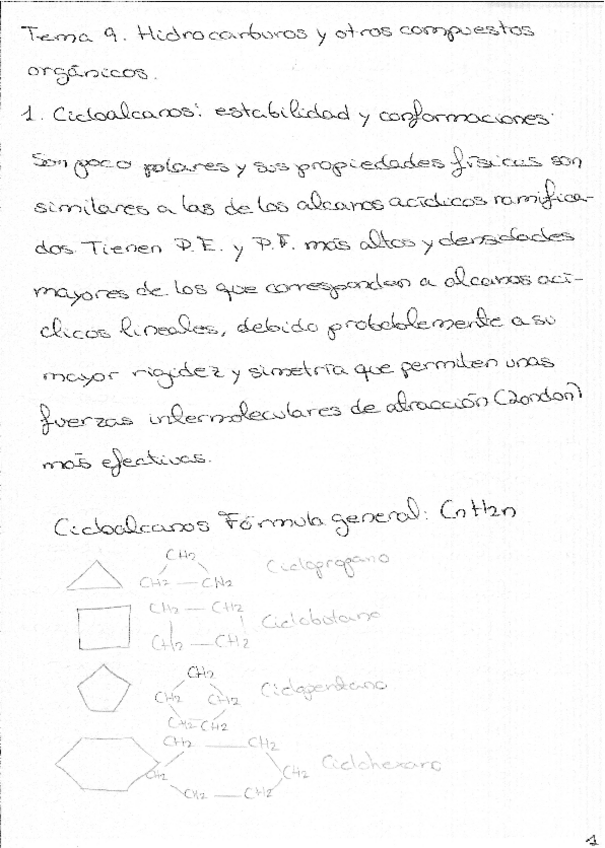 Tema 9. Hidrocarburos y otros compuestos
orgánicos.
1. Cicloalcanos: estabilidad y conformaciones.
Son poco polares y sus propiedades físicas son
similares a las de los alcanos acíclicos ramifica-
dos. Tienen P.E. y P.F. más altos y densidades
mayores de los que corresponden a alcanos ací-
clicos lineales, debido probablemente a su
mayor rigidez y simetría que permiten unas
fuerzas intermoleculares de atracción (London)
más efectivas.
Cicloalcanos Fórmula general: CnH2n
CH2
CH2 — CH2 Ciclopropano
CH2 — CH2
CH2 — CH2 Ciclobutano
CH2
CH2 CH2 Ciclopentano
CH2 — CH2
CH2 — CH2
CH2 CH2 Ciclohexano
CH2 — CH2
1